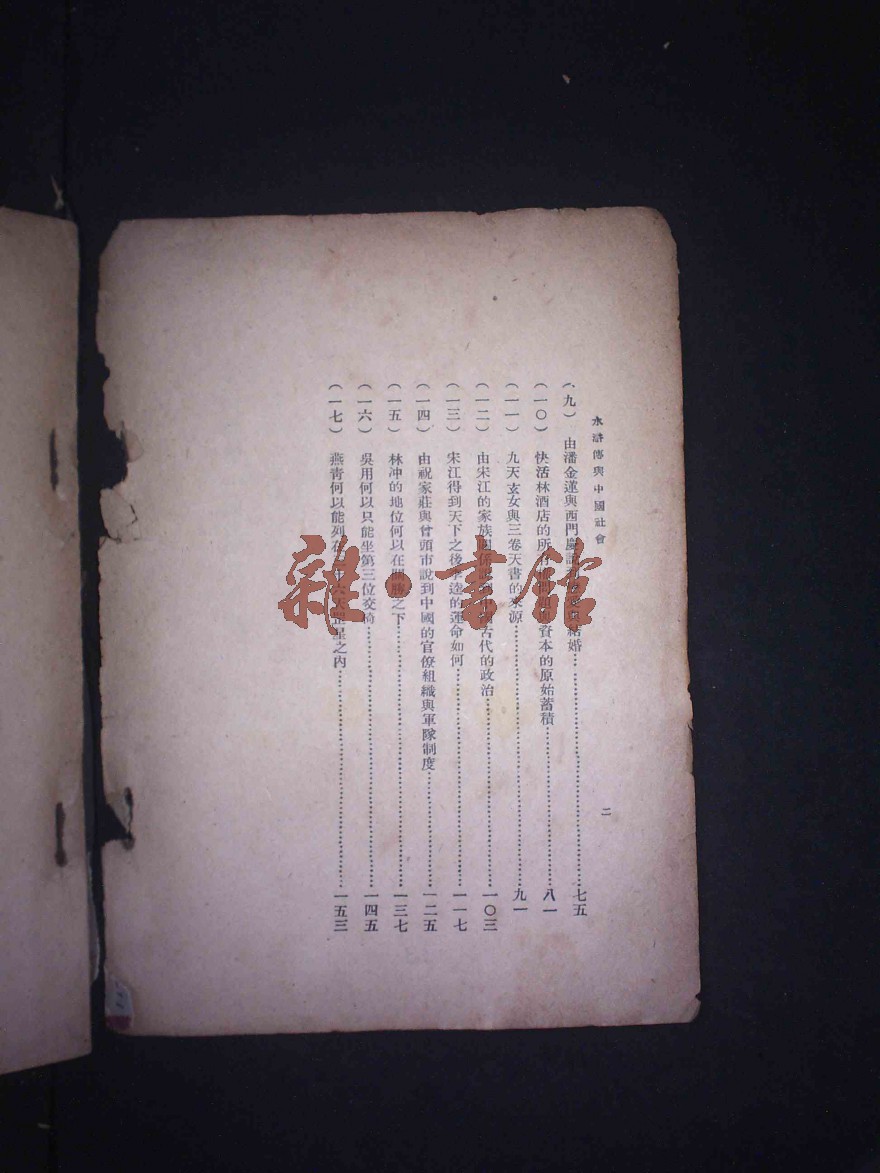 水滸傳與中國社會
二
(九) 由潘金蓮與西門慶 結婚……七五
(一〇) 快活林酒店的所有 資本的原始蓄積……八一
(一一) 九天玄女與三卷天書的來源……九一
(一二) 由宋江的家族關係說到中國古代的政治……一〇三
(一三) 宋江得到天下之後李逵的運命如何……一一七
(一四) 由祝家莊與曾頭市說到中國的官僚組織與軍隊制度……一二五
(一五) 林冲的地位何以在關勝之下……一三七
(一六) 吳用何以只能坐第三位交椅……一四五
(一七) 燕青何以能列在三十六天罡星之內……一五三
雜·書館